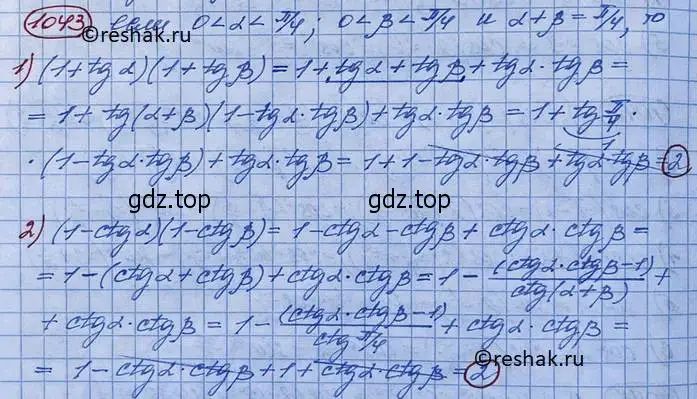 1043 если 0<α<π/4; 0<β<π/4 и α+β=π/4, то
©reshak.ru
1) (1+tgα)(1+tgβ)=1+tgα+tgβ+tgα·tgβ=
=1+tg(α+β)(1-tgα·tgβ)+tgα·tgβ=1+tg π/4 ·
1
·(1-tgα·tgβ)+tgα·tgβ=1+1-tgα·tgβ+tgα·tgβ=2
gdz.top gdz.top
2) (1-ctgα)(1-ctgβ)=1-ctgα-ctgβ+ctgα·ctgβ=
=1-(ctgα+ctgβ)+ctgα·ctgβ=1-(ctgα·ctgβ-1)/ctg(α+β)+
+ctgα·ctgβ=1-(ctgα·ctgβ-1)/ctg π/4+ctgα·ctgβ=
=1-ctgα·ctgβ+1+ctgα·ctgβ=2
©reshak.ru